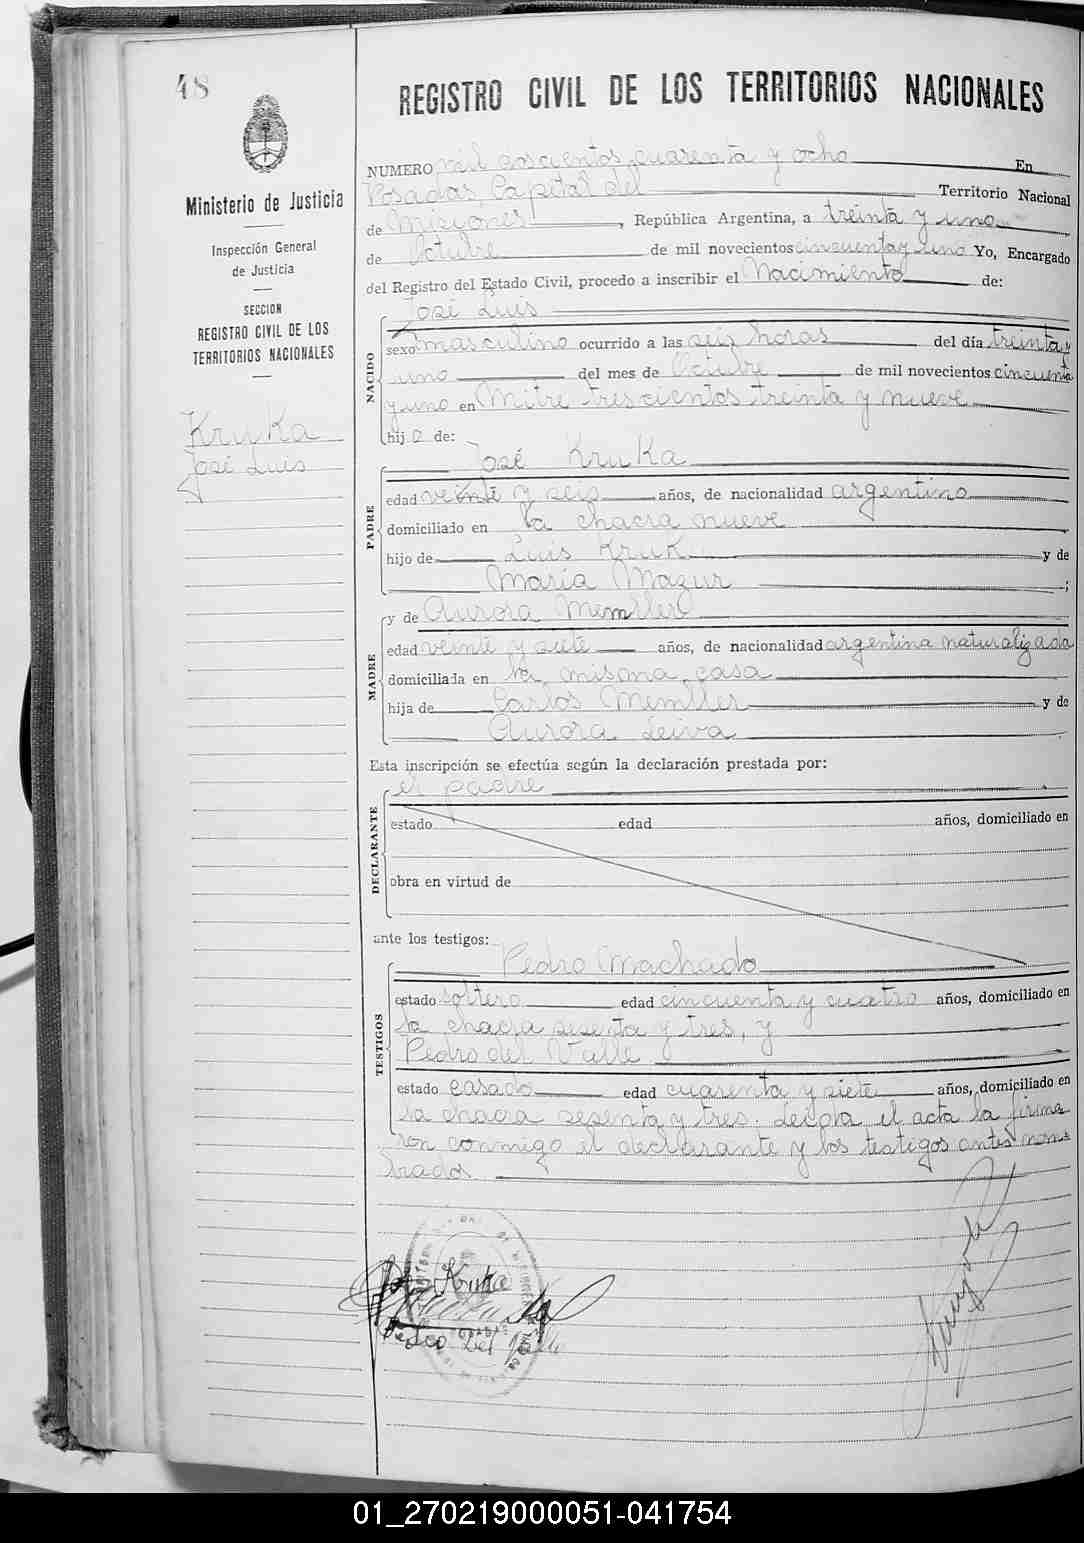 48
REGISTRO CIVIL DE LOS TERRITORIOS NACIONALES
Ministerio de Justicia
Inspección General
de Justicia
SECCION
REGISTRO CIVIL DE LOS
TERRITORIOS NACIONALES
Kruka
José Luis
NUMERO mil doscientos cuarenta y ocho En
Posadas, Capital del Territorio Nacional
de Misiones, República Argentina, a treinta y uno
de Octubre de mil novecientos cincuenta y uno Yo, Encargado
del Registro del Estado Civil, procedo a inscribir el Nacimiento de:
NACIDO
José Luis
sexo masculino ocurrido a las seis horas del día treinta y
uno del mes de Octubre de mil novecientos cincuenta
y uno en Mitre trescientos treinta y nueve
hijo de:
PADRE
José Kruka
edad veinte y seis años, de nacionalidad argentino
domiciliado en la chacra nueve
hijo de Luis Kruk y de
María Mazur;
MADRE
y de Aurora Memller
edad veinte y siete años, de nacionalidad argentina naturalizada
domiciliada en la misma casa
hija de Carlos Memller y de
Aurora Leiva
Esta inscripción se efectúa según la declaración prestada por:
DECLARANTE
el padre
estado edad años, domiciliado en
obra en virtud de
ante los testigos:
TESTIGOS
Pedro Machado
estado soltero edad cincuenta y cuatro años, domiciliado en
la chacra sesenta y tres, y
Pedro del Valle
estado casado edad cuarenta y siete años, domiciliado en
la chacra sesenta y tres. Leida el acta la firma
ron conmigo el declarante y los testigos antes nom
brados
Kruka
Pedro Del Valle
01_270219000051-041754